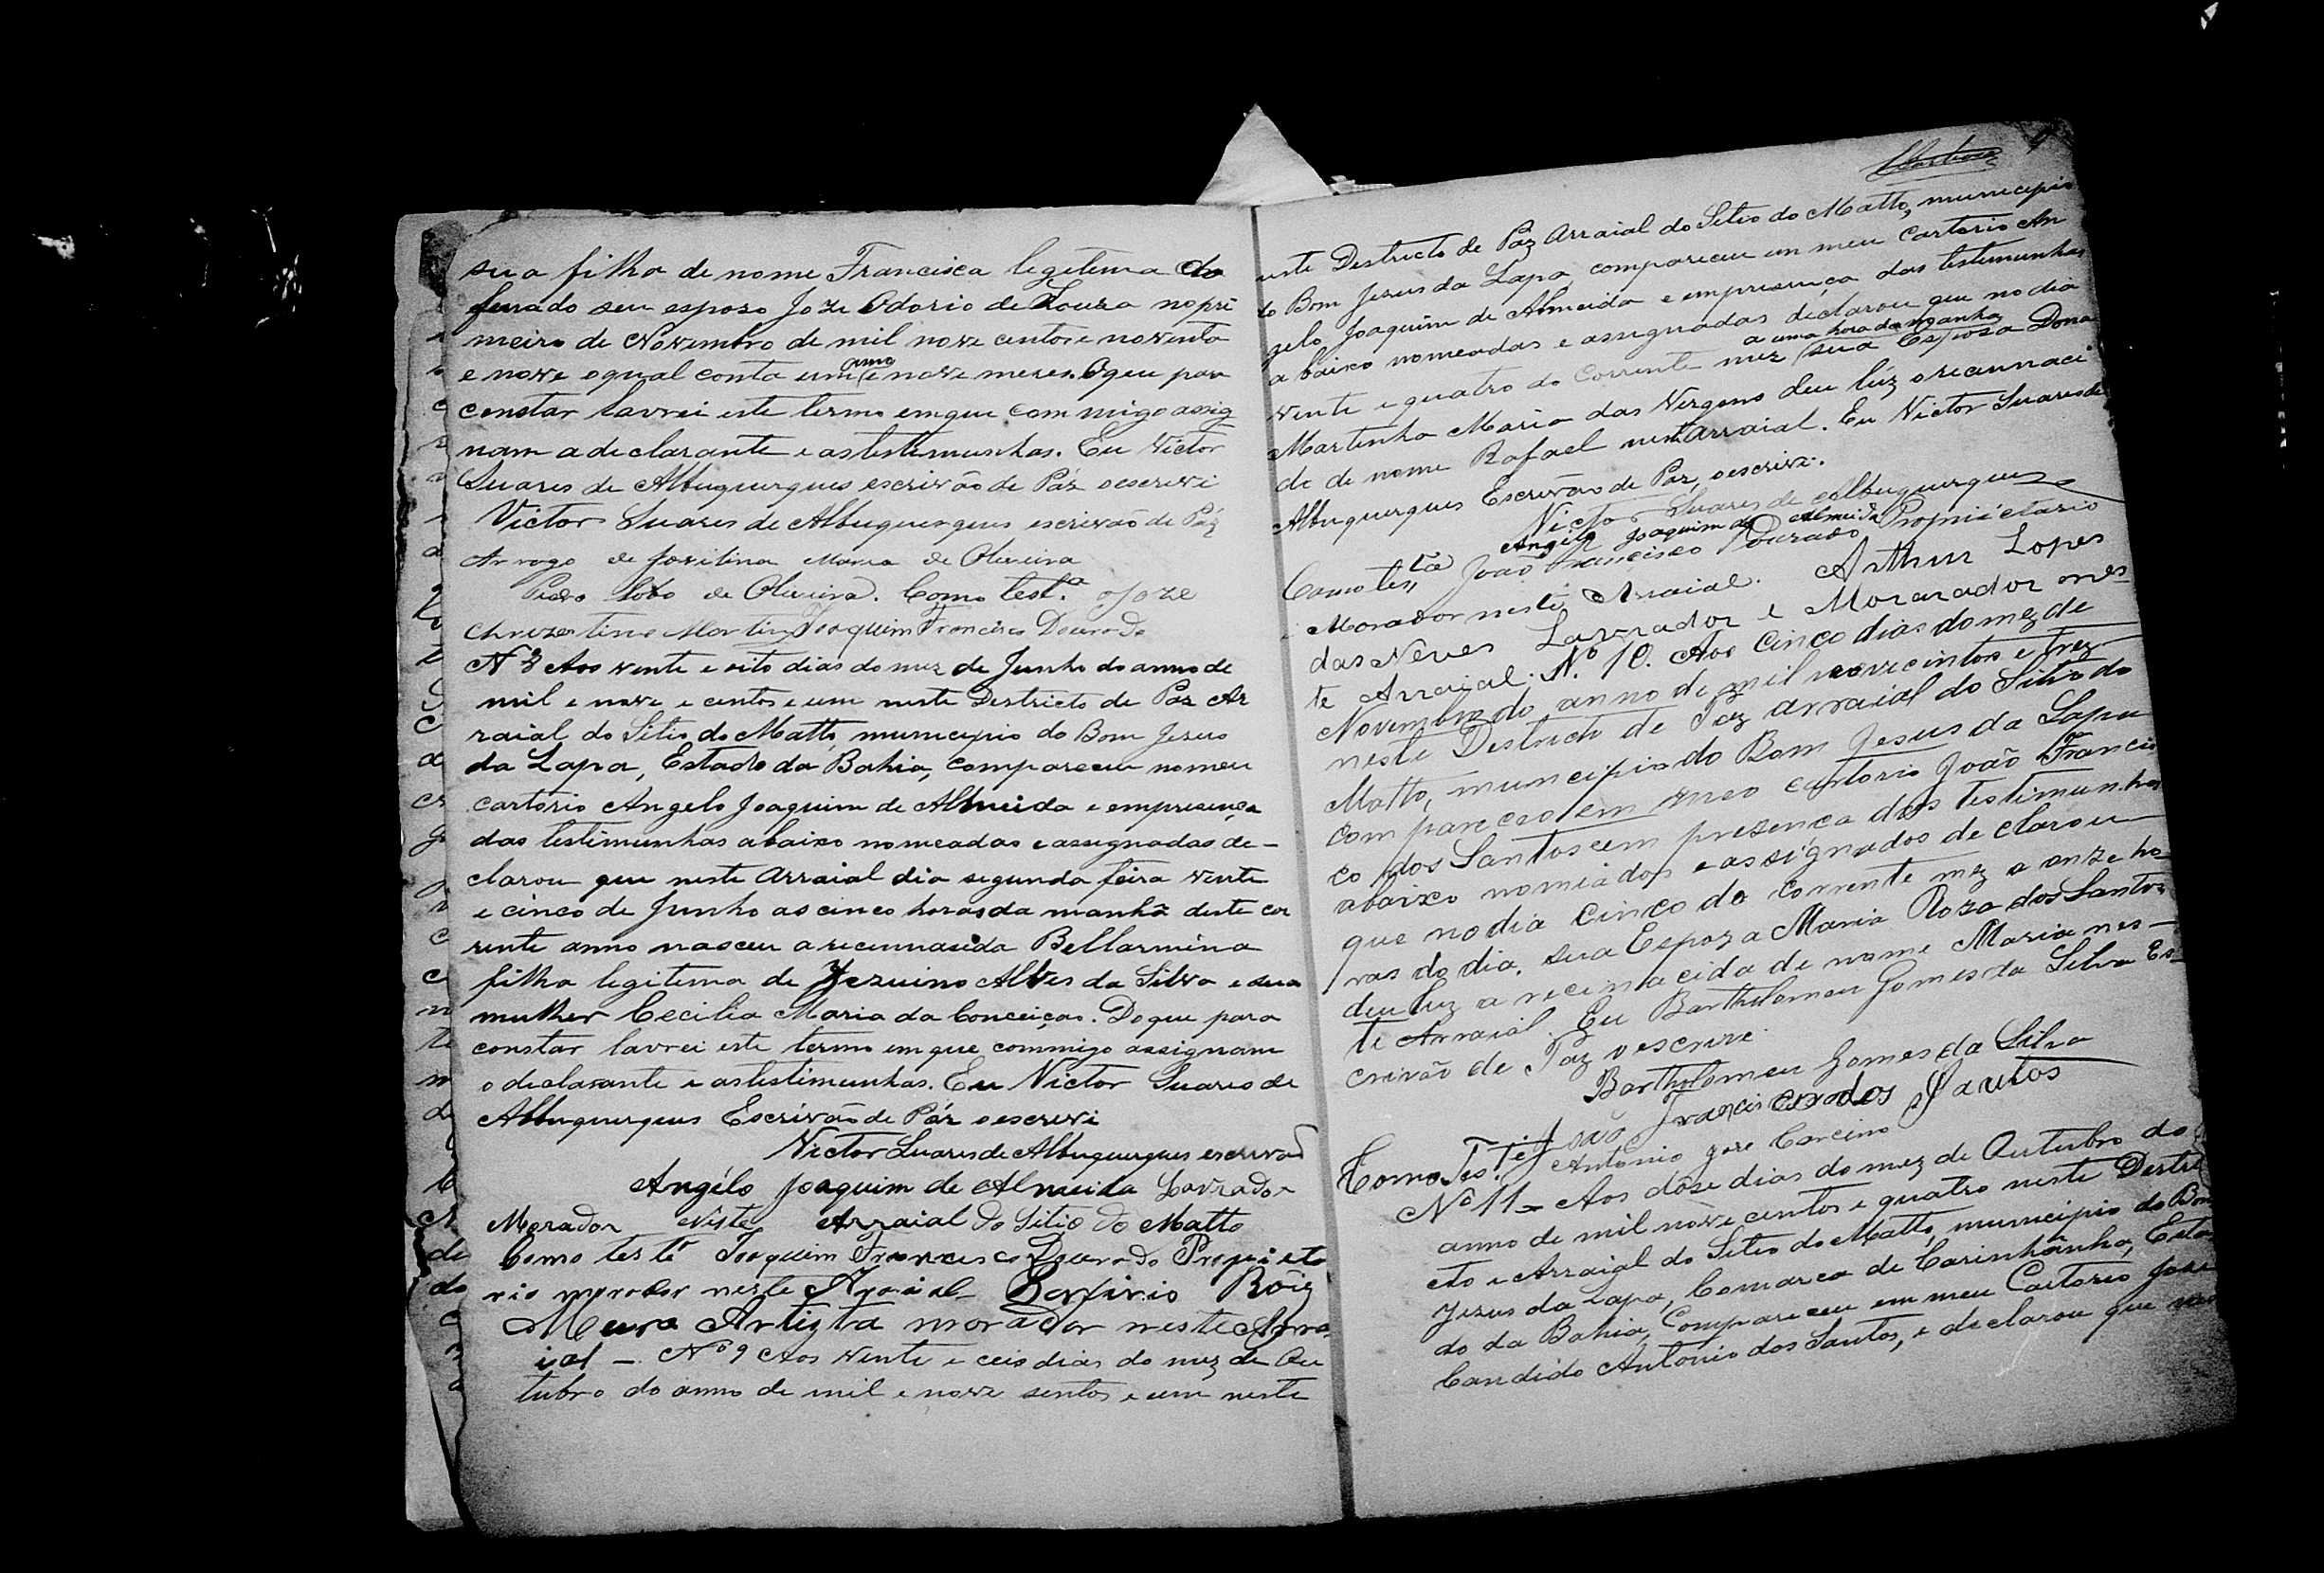 sua filha de nome Francisca legitema do
fenado seu esposo Joze Odorio de Souza nopri
meiro de Novembro de mil nove centos e noventa
e nove e qual conta um anno e nove mezes. O que para
constar lavrei este termo em que com migo assig
nam a declarante e as testemunhas. Eu Victor
Suares de Albuquerques escrivão de Páz o escrevi
Victor Suares de Albuquerques escrivão de Páz
Arrogo de Jovilina Maria de Oliveira
Pedro Lobo de Oliveira. Como test.ª o Joze
Martins Joaquim Francisco Dourado
Nº 8 Aos vente e oito dias do mez de Junho do anno de
mil e nove e centos e um neste Destricto de Paz Ar
raial do Sitio do Matto, municipio do Bom Jesus
da Lapa, Estado da Bahia, compareceu no meu
cartorio Angelo Joaquim de Almeida e empresença
das testimunhas abaixo nomeadas e assignadas de-
clarou que neste Arraial dia segunda feira vente
e cinco de Junho as cinco horas da manhã deste cor
rente anno nasceu a recennascida Bellarmina
filha legitema de Jezuino Alves da Silva e sua
mulher Cecilia Maria da Conceição. Do que para
constar lavrei este termo em que commigo assignam
o declarante e as testimunhas. Eu Victor Suares de
Albuquerques Escrivão de Páz o escrevi
Victor Suares de Albuquerques escrivão
Angélo Joaquim de Almeida Lavrador
Morador Néste Arraial do Sitio do Matto
Como teste Joaquim Francisco Dourado Proprieta
rio morador neste Araial Porfirio Roiz
Moura Artista morador neste Arra
ial - Nº 9 Aos vente e ceis dias do mez de Ou
tubro do anno de mil e nove sentos e um neste
4
neste Destricto de Páz Arraial do Sitio do Matto, municipio
do Bom Jesus da Lapa, compareceu em meu Cartorio An
gelo Joaquim de Almeida e empresença das testemunhas
abaixo nomeadas e assignadas declarou que no dia
vente e quatro do Corrente mez a uma hora da manhã sua Espoza Dona
Martinha Maria das Virgens deu lúz o recannaci
do de nome Rafael neste Arraial. Eu Victor Suares de
Albuquerques Escrivão de Paz, o escrivi.
Victor Suares de Albuquerques
Angélo Joaquim de Almeida
Como test.ta João Francisco Dourado Propriétario
Morador neste Arraial. Arthur Lopes
das Neves Lavrador e Morarador nes-
te Arraial. Nº 10. Aos cinco dias do mez de
Novembro do anno de mil novecintos e trez
neste Destricto de Paz arraial do Sitio do
Matto, municipio do Bom Jesus da Lapa
compareceo em meo cartorio João Francis
co dos Santos em presenca das testimunhas
abaixo nomiados e assignados declarou
que no dia cinco do corrente mez a onze ho
ras do dia, sua Espoza Maria Roza dos Santos
deu luz a recemnacida de nome Maria nes-
te Arraial. Eu Bartholomeu Gomes da Silva Es-
crivão de Paz o escrivi.
Bartholomeu Gomes da Silva
João Francisco dos Santos
Como Tes.te Antonio Joze Carcino
Nº 11 - Aos dôze dias do mez de Outubro do
anno de mil nove centos e quatro neste Destri
cto e Arraial do Sitio do Matto, municipio do Bom
Jezus da Lapa, Comarca de Carinhânha, Esta
do da Bahia, Compareceu em meu Cartorio Joze
Candido Antonio dos Santos, e declarou que